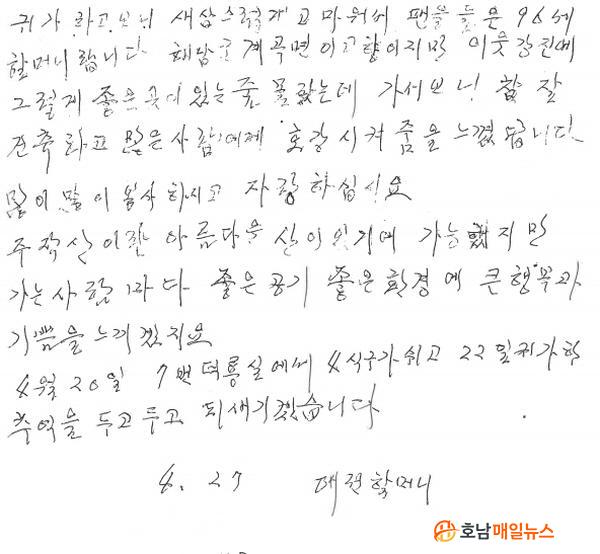 귀가 하고보니 새삼스럽게 고마워서 팬을 들은 96세
할머니 랍니다 해남군 계곡면이 고향이지만 이웃 강진에
그렇게 좋은곳이 있는줄 몰랐는데 가서보니 참 잘
건축하고 많은사람에게 호강시켜줌을 느꼈답니다
많이 많이 봉사하시고 자랑하십시요
주작산이란 아름다운 산이 있기에 가능했지만
가는사람마다 좋은공기 좋은환경에 큰행복과
기쁨을 느끼겠지요
4월 20일 7번 덕룡실에서 4식구가 쉬고 22일 귀가한
추억을 두고두고 되새기겠습니다
4. 27 대전할머니
호남매일뉴스